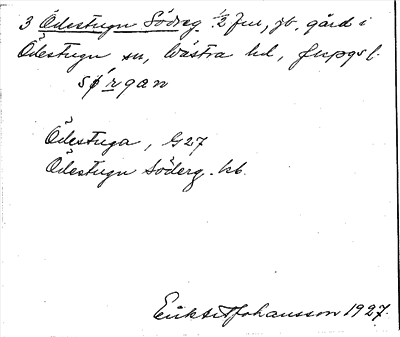 3 Ödestugu Söderg. 1/2 fm, jb. gård i
Ödestugu sn, Västra hd, Jkpgs l.
sǿrgan
Ödestuga, G27
Ödestugu Söderg. kb.
Johansson 1927.